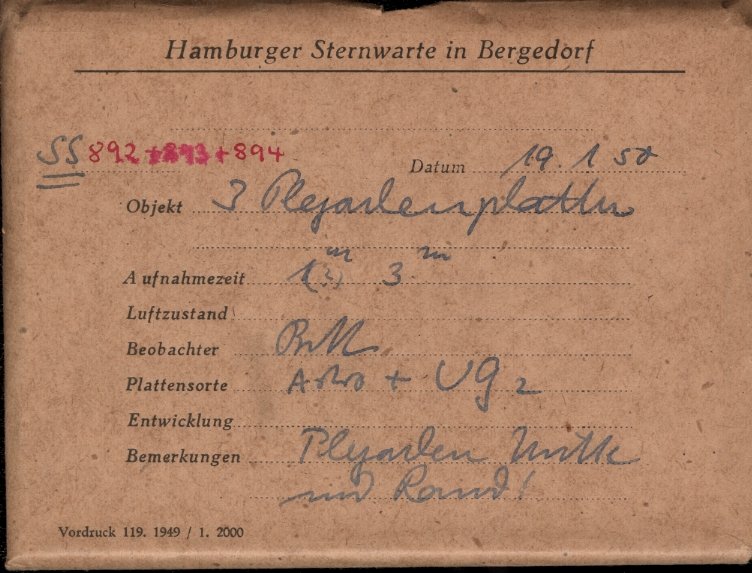 Hamburger Sternwarte in Bergedorf
SS 892+893+894
Datum 19. 1 50
Objekt 3 Plejadenplatten
Aufnahmezeit 1(?)m 3m
Luftzustand
Beobachter
Plattensorte Astro + UG 2
Entwicklung
Bemerkungen Plejaden Mitte
und Rand!
Vordruck 119. 1949 / 1. 2000